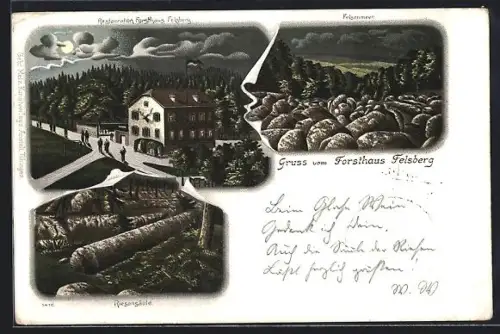 Restauration Forsthaus Felsberg.
Felsenmeer
Gruss vom Forsthaus Felsberg
Beim Glase Wein
Gedenk ich Dein.
Auch die Säule der Riesen
Läßt herzlich grüßen!
W. W.
Riesensäule